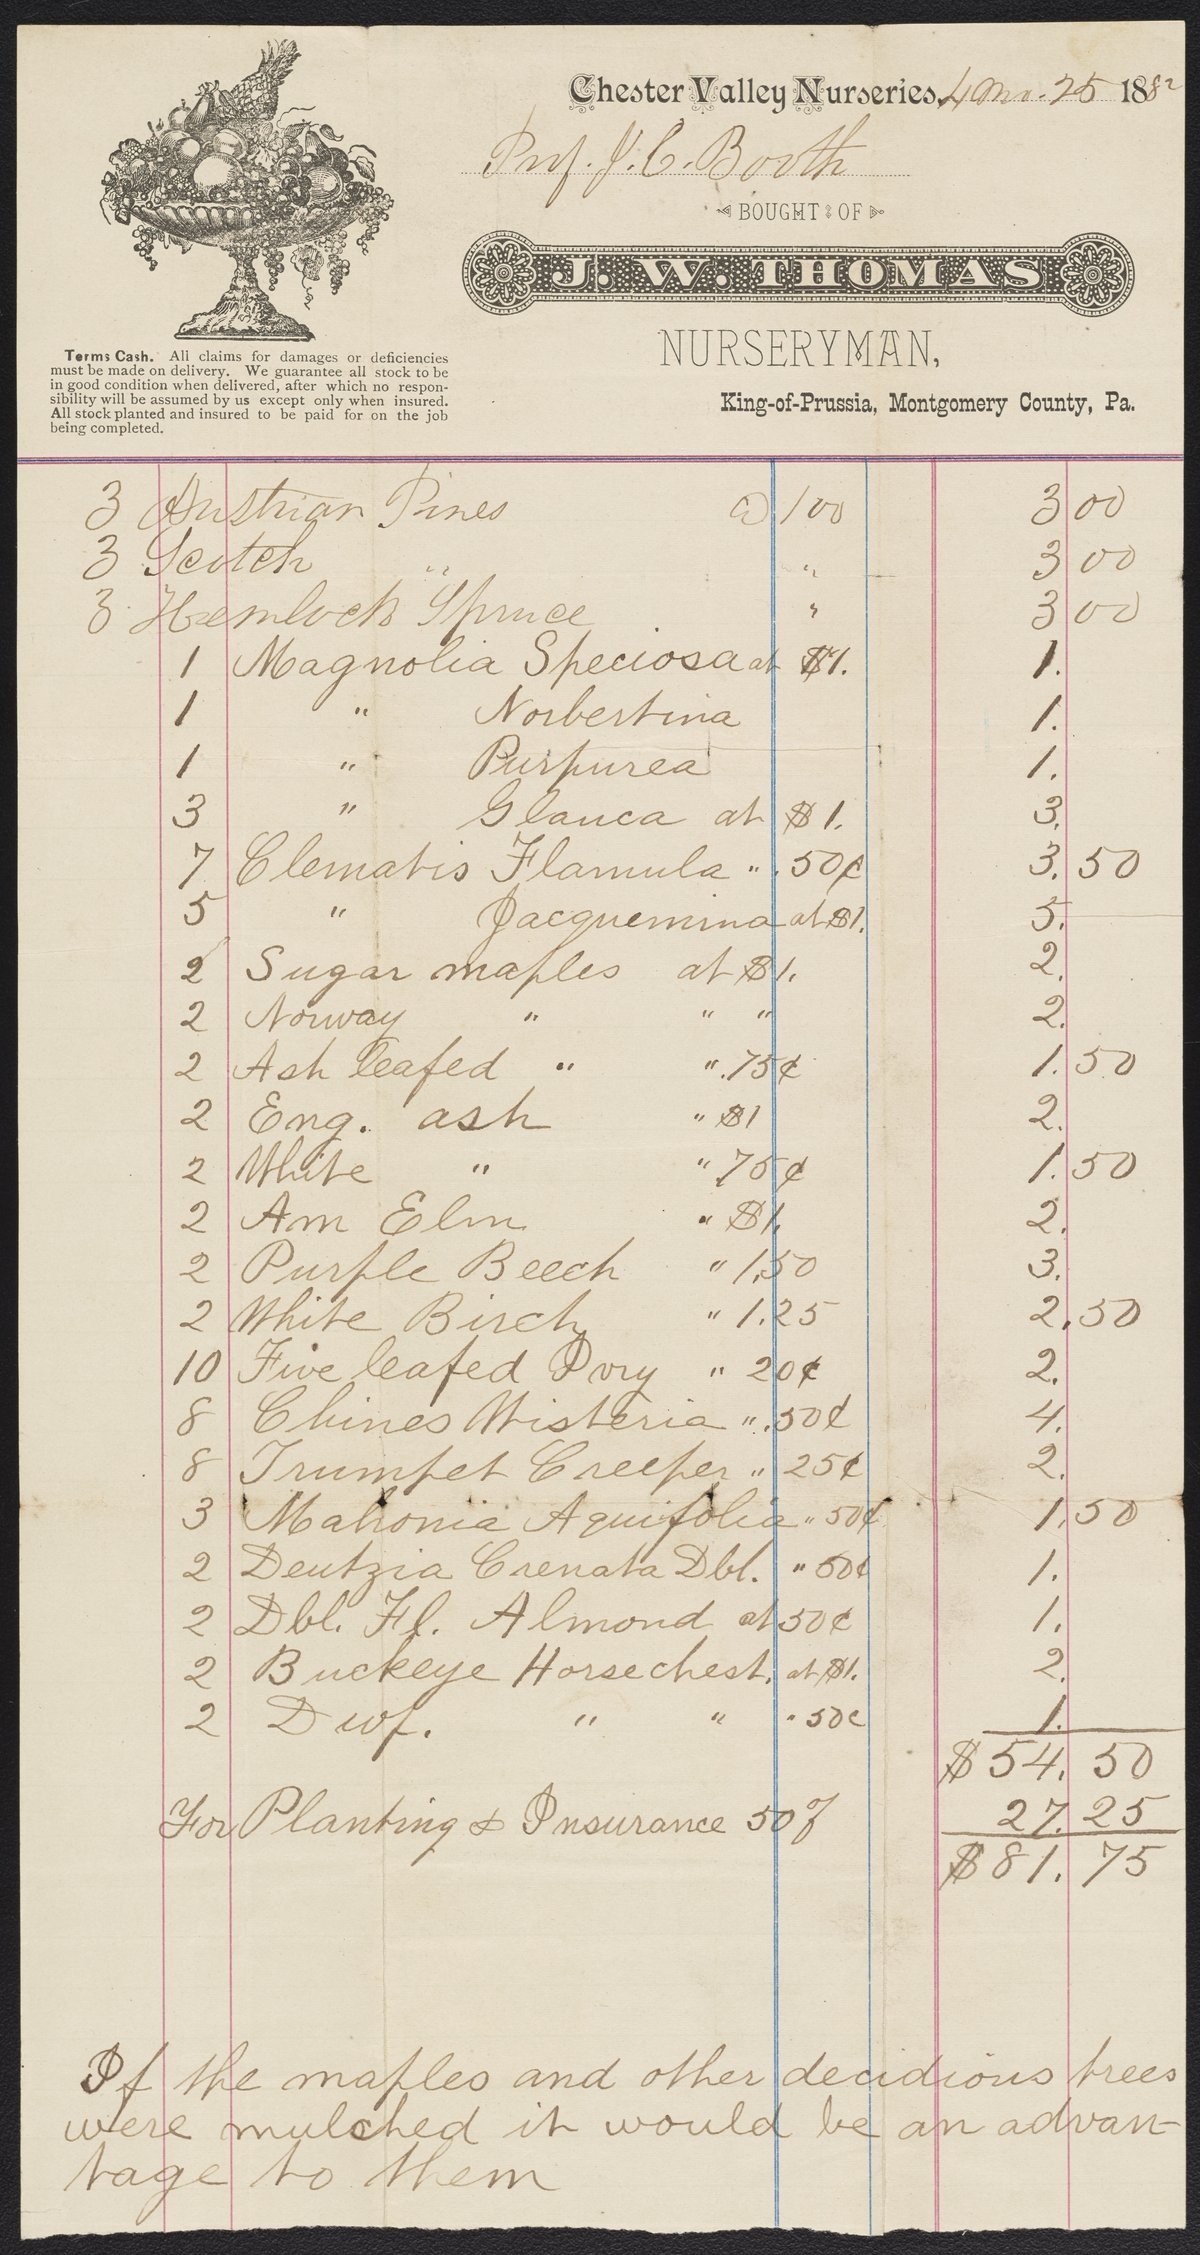 Chester Valley Nurseries, 4 Mo. 25 1882
Prof. J. C. Booth
BOUGHT OF
J. W. THOMAS
NURSERYMAN,
King-of-Prussia, Montgomery County, Pa.
Terms Cash. All claims for damages or deficiencies
must be made on delivery. We guarantee all stock to be
in good condition when delivered, after which no respon-
sibility will be assumed by us except only when insured.
All stock planted and insured to be paid for on the job
being completed.
3 Austrian Pines @ 100 3 00
3 Scotch " " 3 00
3 Hemlock Spruce " 3 00
1 Magnolia Speciosa at $1. 1.
1 " Norbertina 1.
1 " Purpurea 1.
3 " Glauca at $1. 3.
7 Clematis Flamula " .50¢ 3.50
5 " Jacquemina at $1. 5.
2 Sugar maples at $1. 2.
2 Norway " " " 2.
2 Ash leafed " " .75¢ 1.50
2 Eng. ash " $1 2.
2 White " " 75¢ 1.50
2 Am Elm " $1. 2.
2 Purple Beech " 1.50 3.
2 White Birch " 1.25 2.50
10 Five leafed Ivy " 20¢ 2.
8 Chines Wisteria " .50¢ 4.
8 Trumpet Creeper " 25¢ 2.
3 Mahonia Aquifolia " 50¢ 1.50
2 Deutzia Crenata Dbl. " 50¢ 1.
2 Dbl. Fl. Almond at 50¢ 1.
2 Buckeye Horsechest. at $1. 2.
2 Dwf. " " " 50c 1.
$54.50
For Planting & Insurance 50% 27.25
$81.75
If the maples and other decidious trees
were mulched it would be an advan-
tage to them